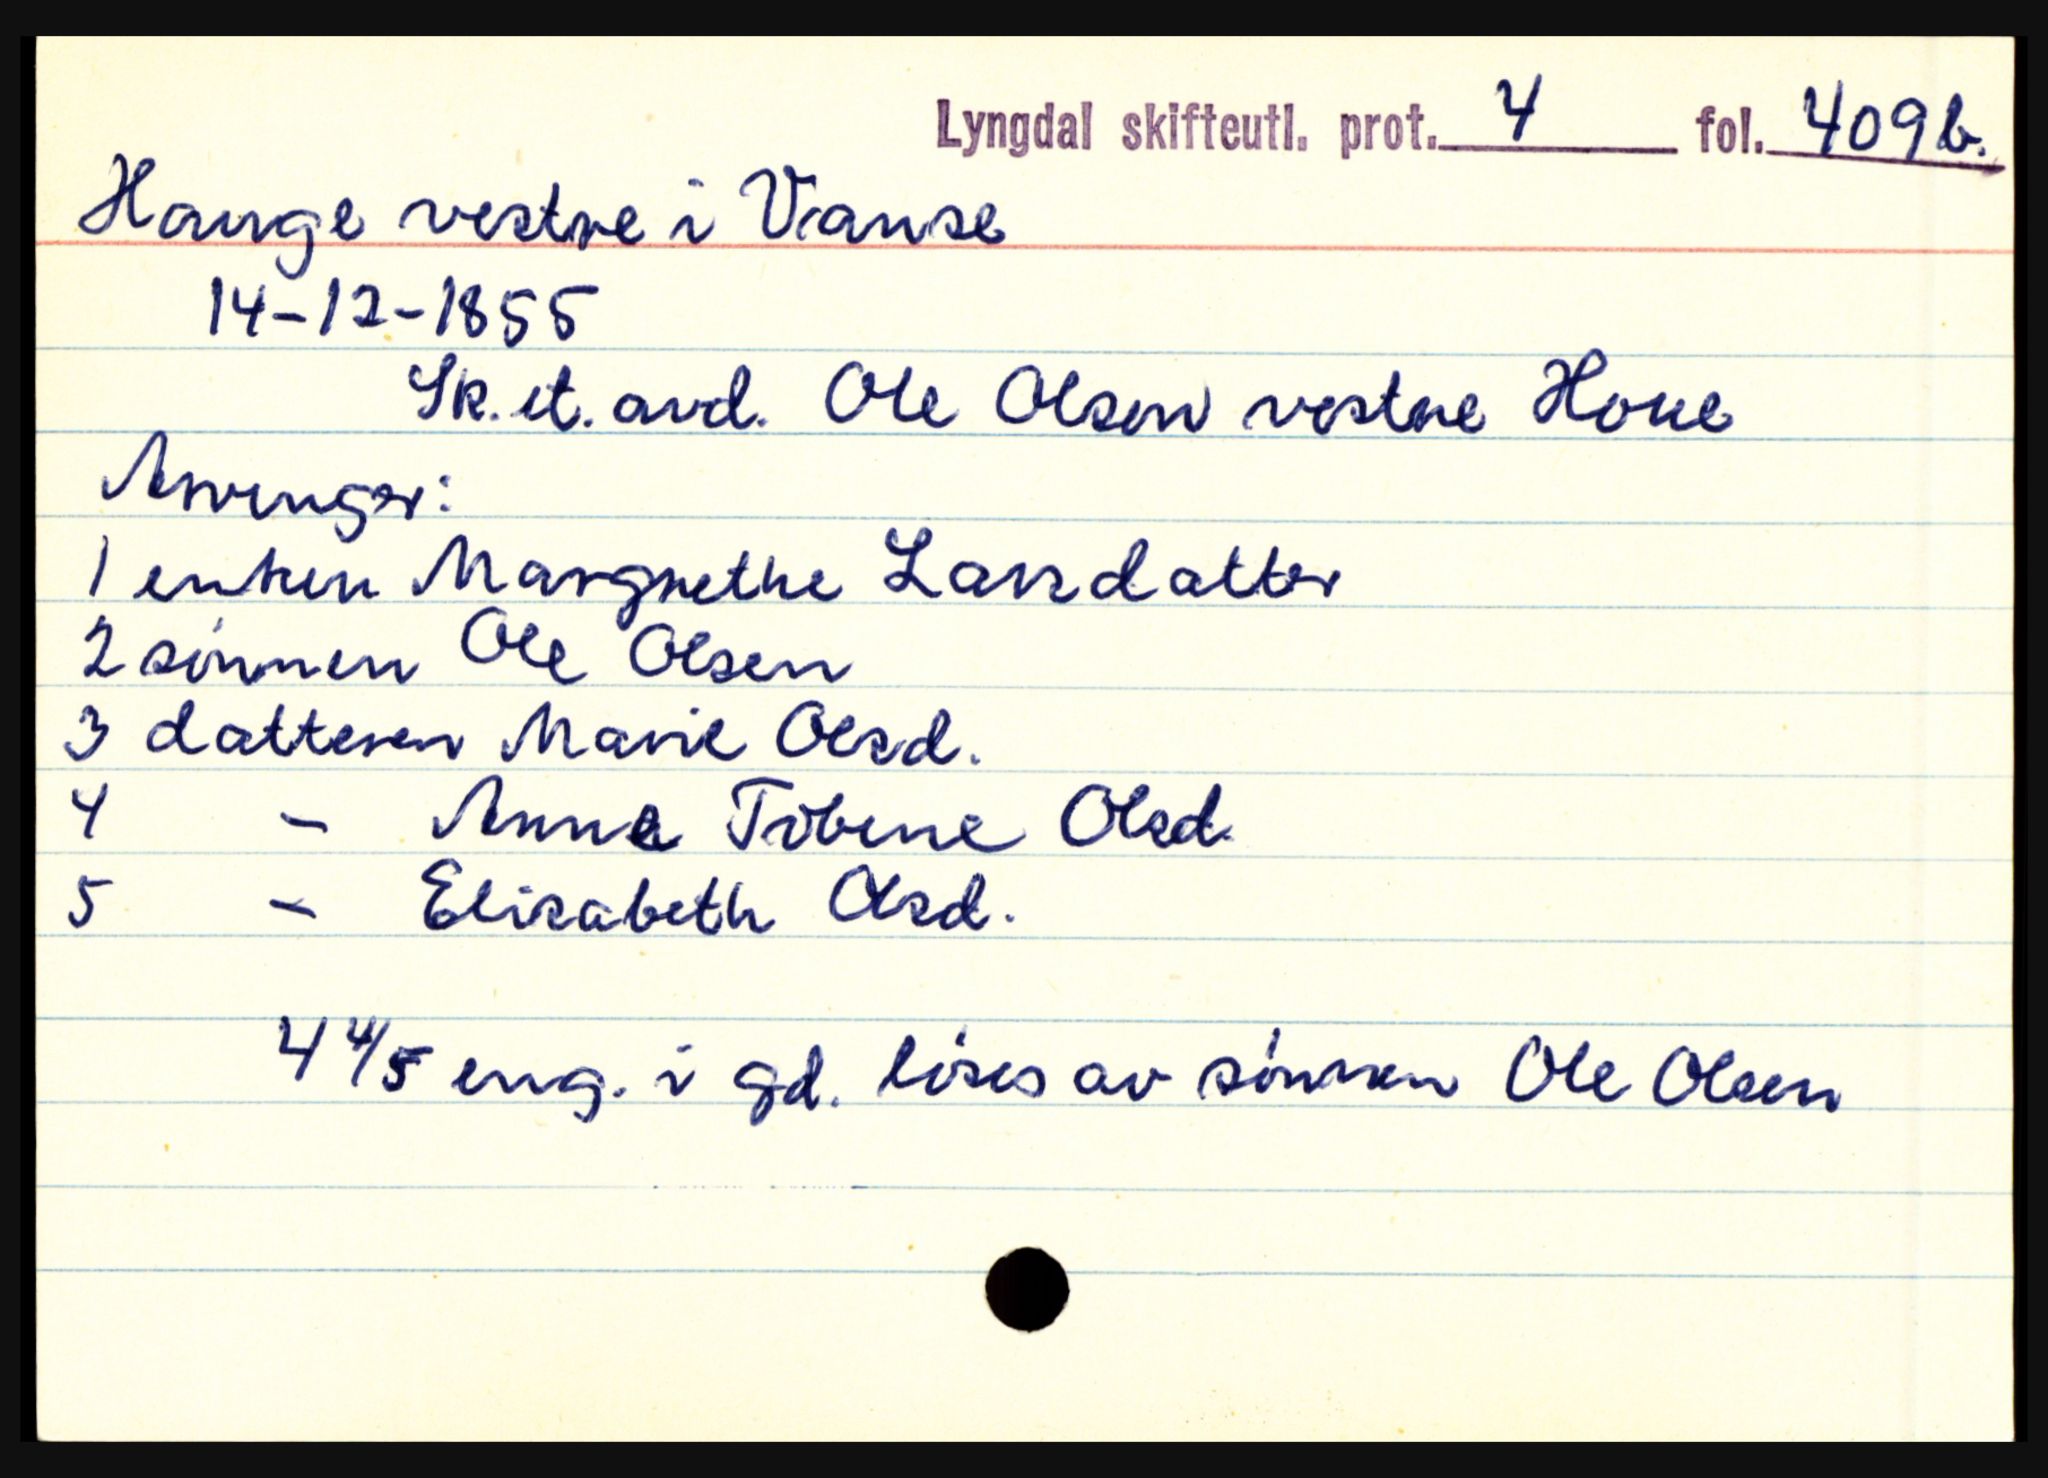 Lyngdal skifteutl. prot. 4 fol. 409b.
Hauge vestre i Vanse
14-12-1855
Sk. et. avd. Ole Olsen vestre Houe
Arvinger:
1 enken Margrethe Larsdatter
2 sönnen Ole Olsen
3 datteren Marie Olsd.
4 - Anne Tobine Olsd.
5 - Elisabeth Olsd.
4 4/5 eng. i gd. löses av sönnen Ole Olsen